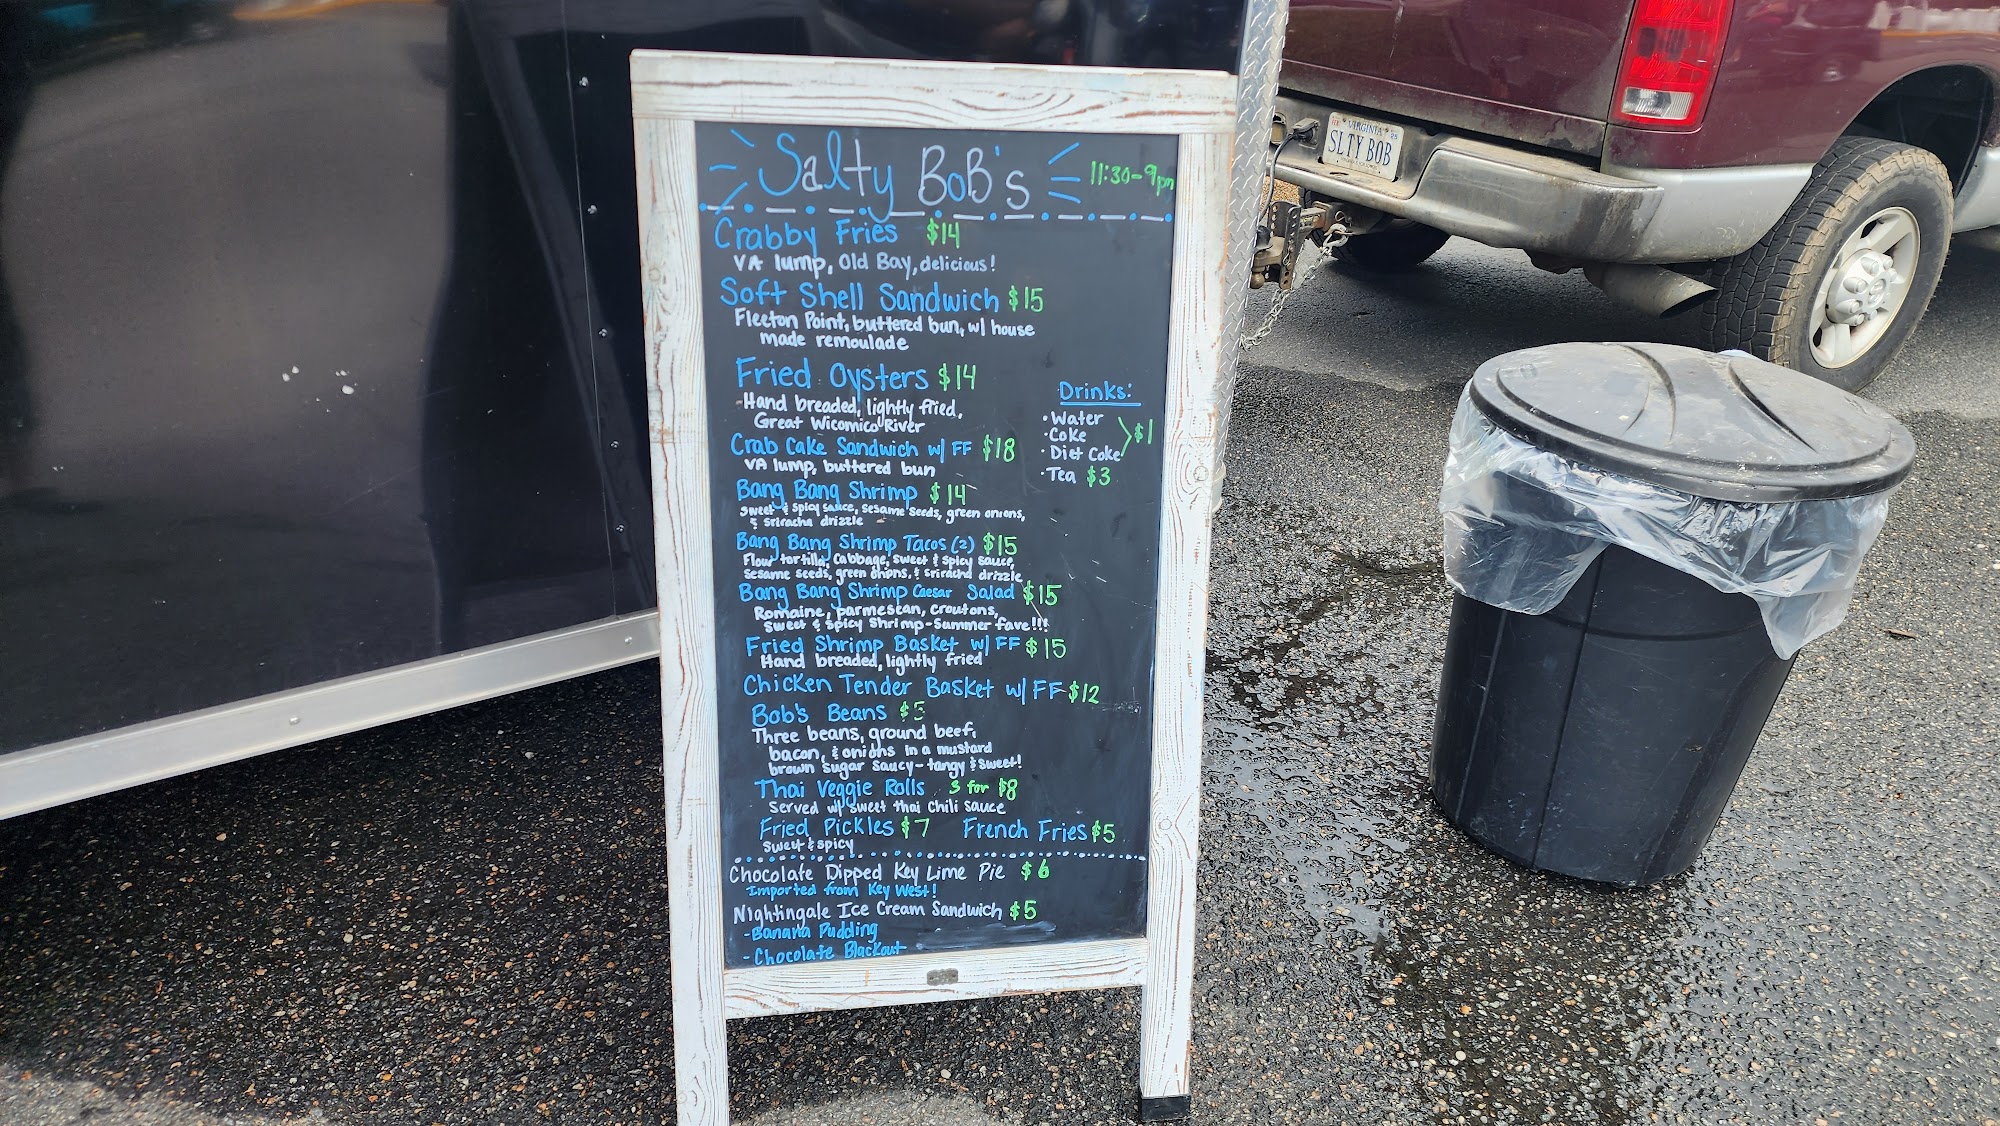 Salty BoB's 11:30-9pm
Crabby Fries $14
VA lump, Old Bay, delicious!
Soft Shell Sandwich $15
Fleeton Point, buttered bun, w/ house
made remoulade
Fried Oysters $14
Hand breaded, lightly fried,
Great Wicomico River
Crab Cake Sandwich w/ FF $18
VA lump, buttered bun
Bang Bang Shrimp $14
Sweet & Spicy sauce, sesame seeds, green onions,
& sriracha drizzle
Bang Bang Shrimp Tacos (2) $15
Flour tortilla, cabbage, sweet & spicy sauce,
sesame seeds, green onions, & sriracha drizzle
Bang Bang Shrimp Caesar Salad $15
Romaine, parmesean, croutons,
sweet & spicy shrimp-summer fave!!!
Fried Shrimp Basket w/ FF $15
Hand breaded, lightly fried
Chicken Tender Basket w/ FF $12
Bob's Beans $5
Three beans, ground beef,
bacon, & onions in a mustard
brown sugar saucy-tangy & sweet!
Thai Veggie Rolls 3 for $8
Served w/ sweet thai chili sauce
Fried Pickles $7 French Fries $5
Sweet & spicy
Chocolate Dipped Key Lime Pie $6
Imported from Key West!
Nightingale Ice Cream Sandwich $5
-Banana Pudding
-Chocolate Blackout
Drinks:
·Water
·Coke $1
·Diet Coke
·Tea $3
VIRGINIA
SLTY BOB